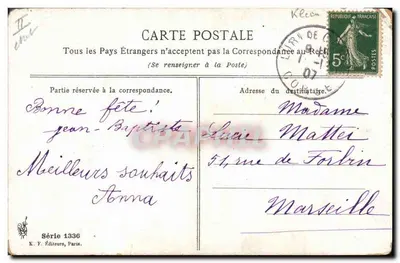 CARTE POSTALE
Tous les Pays Étrangers n'acceptent pas la Correspondance au Recto
(Se renseigner à la Poste)
Partie réservée à la correspondance.
Adresse du destinataire.
RÉPUBLIQUE FRANÇAISE
5c
POSTES
07
Bonne fête!
Jean-Baptiste
Meilleurs souhaits
Anna
Madame
Mattei
51, rue de Forbin
Marseille
Série 1336
K. F. Éditeurs, Paris.